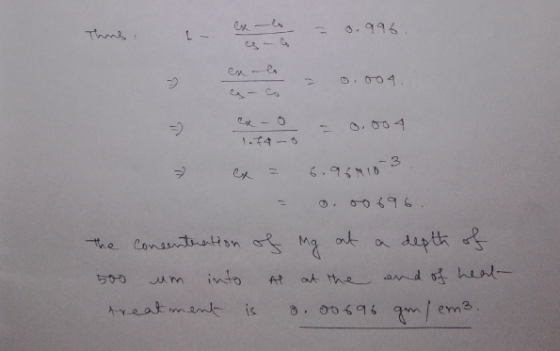 Thus, 1 - (cx - c0)/(cs - c0) = 0.996.
⇒ (cx - c0)/(cs - c0) = 0.004.
⇒ (cx - 0)/(1.74 - 0) = 0.004
⇒ cx = 6.96×10^-3
= 0.00696.
The concentration of Mg at a depth of
500 um into Al at the end of heat-
treatment is 0.00696 gm/cm3.